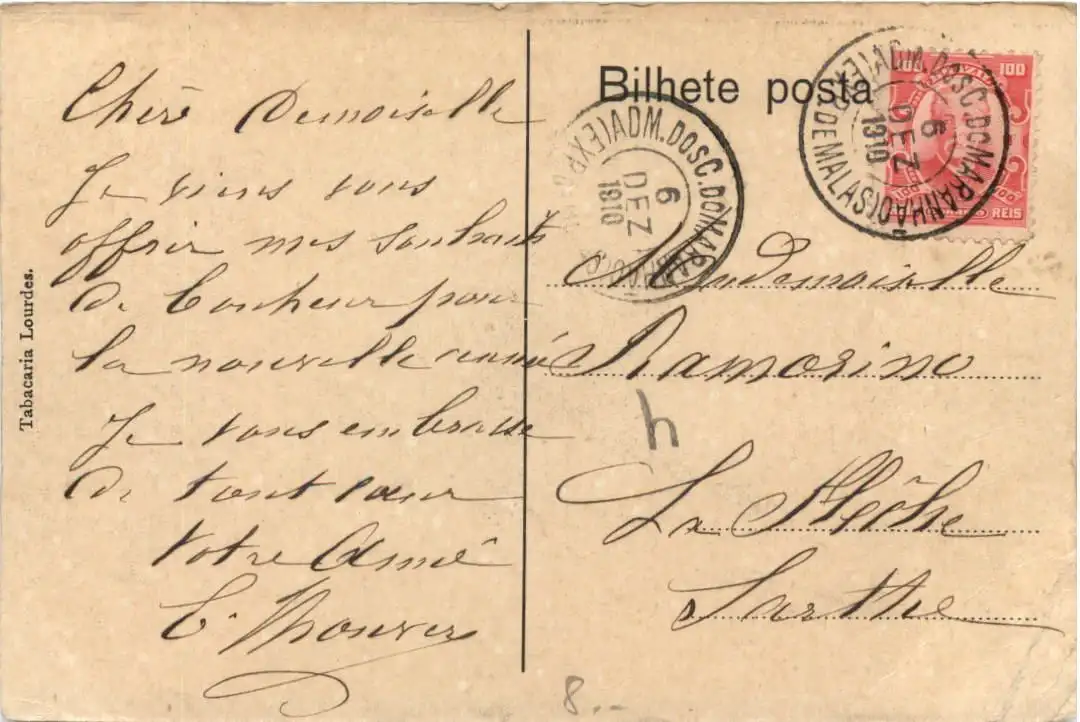 Tabacaria Lourdes.
Chère Demoiselle
Je viens vous
offrir mes souhaits
de bonheur pour
la nouvelle année
Je vous embrasse
de tout cœur
Votre Amie
Bilhete posta
100 100
REIS
ADM. DOS C. DO MARANHAO
6
DEZ
1910
EXP. DE MALAS
ADM. DOS C. DO MARANHAO
6
DEZ
1910
Mademoiselle
Ramorino
h
La Flêche
Sarthe
8.-